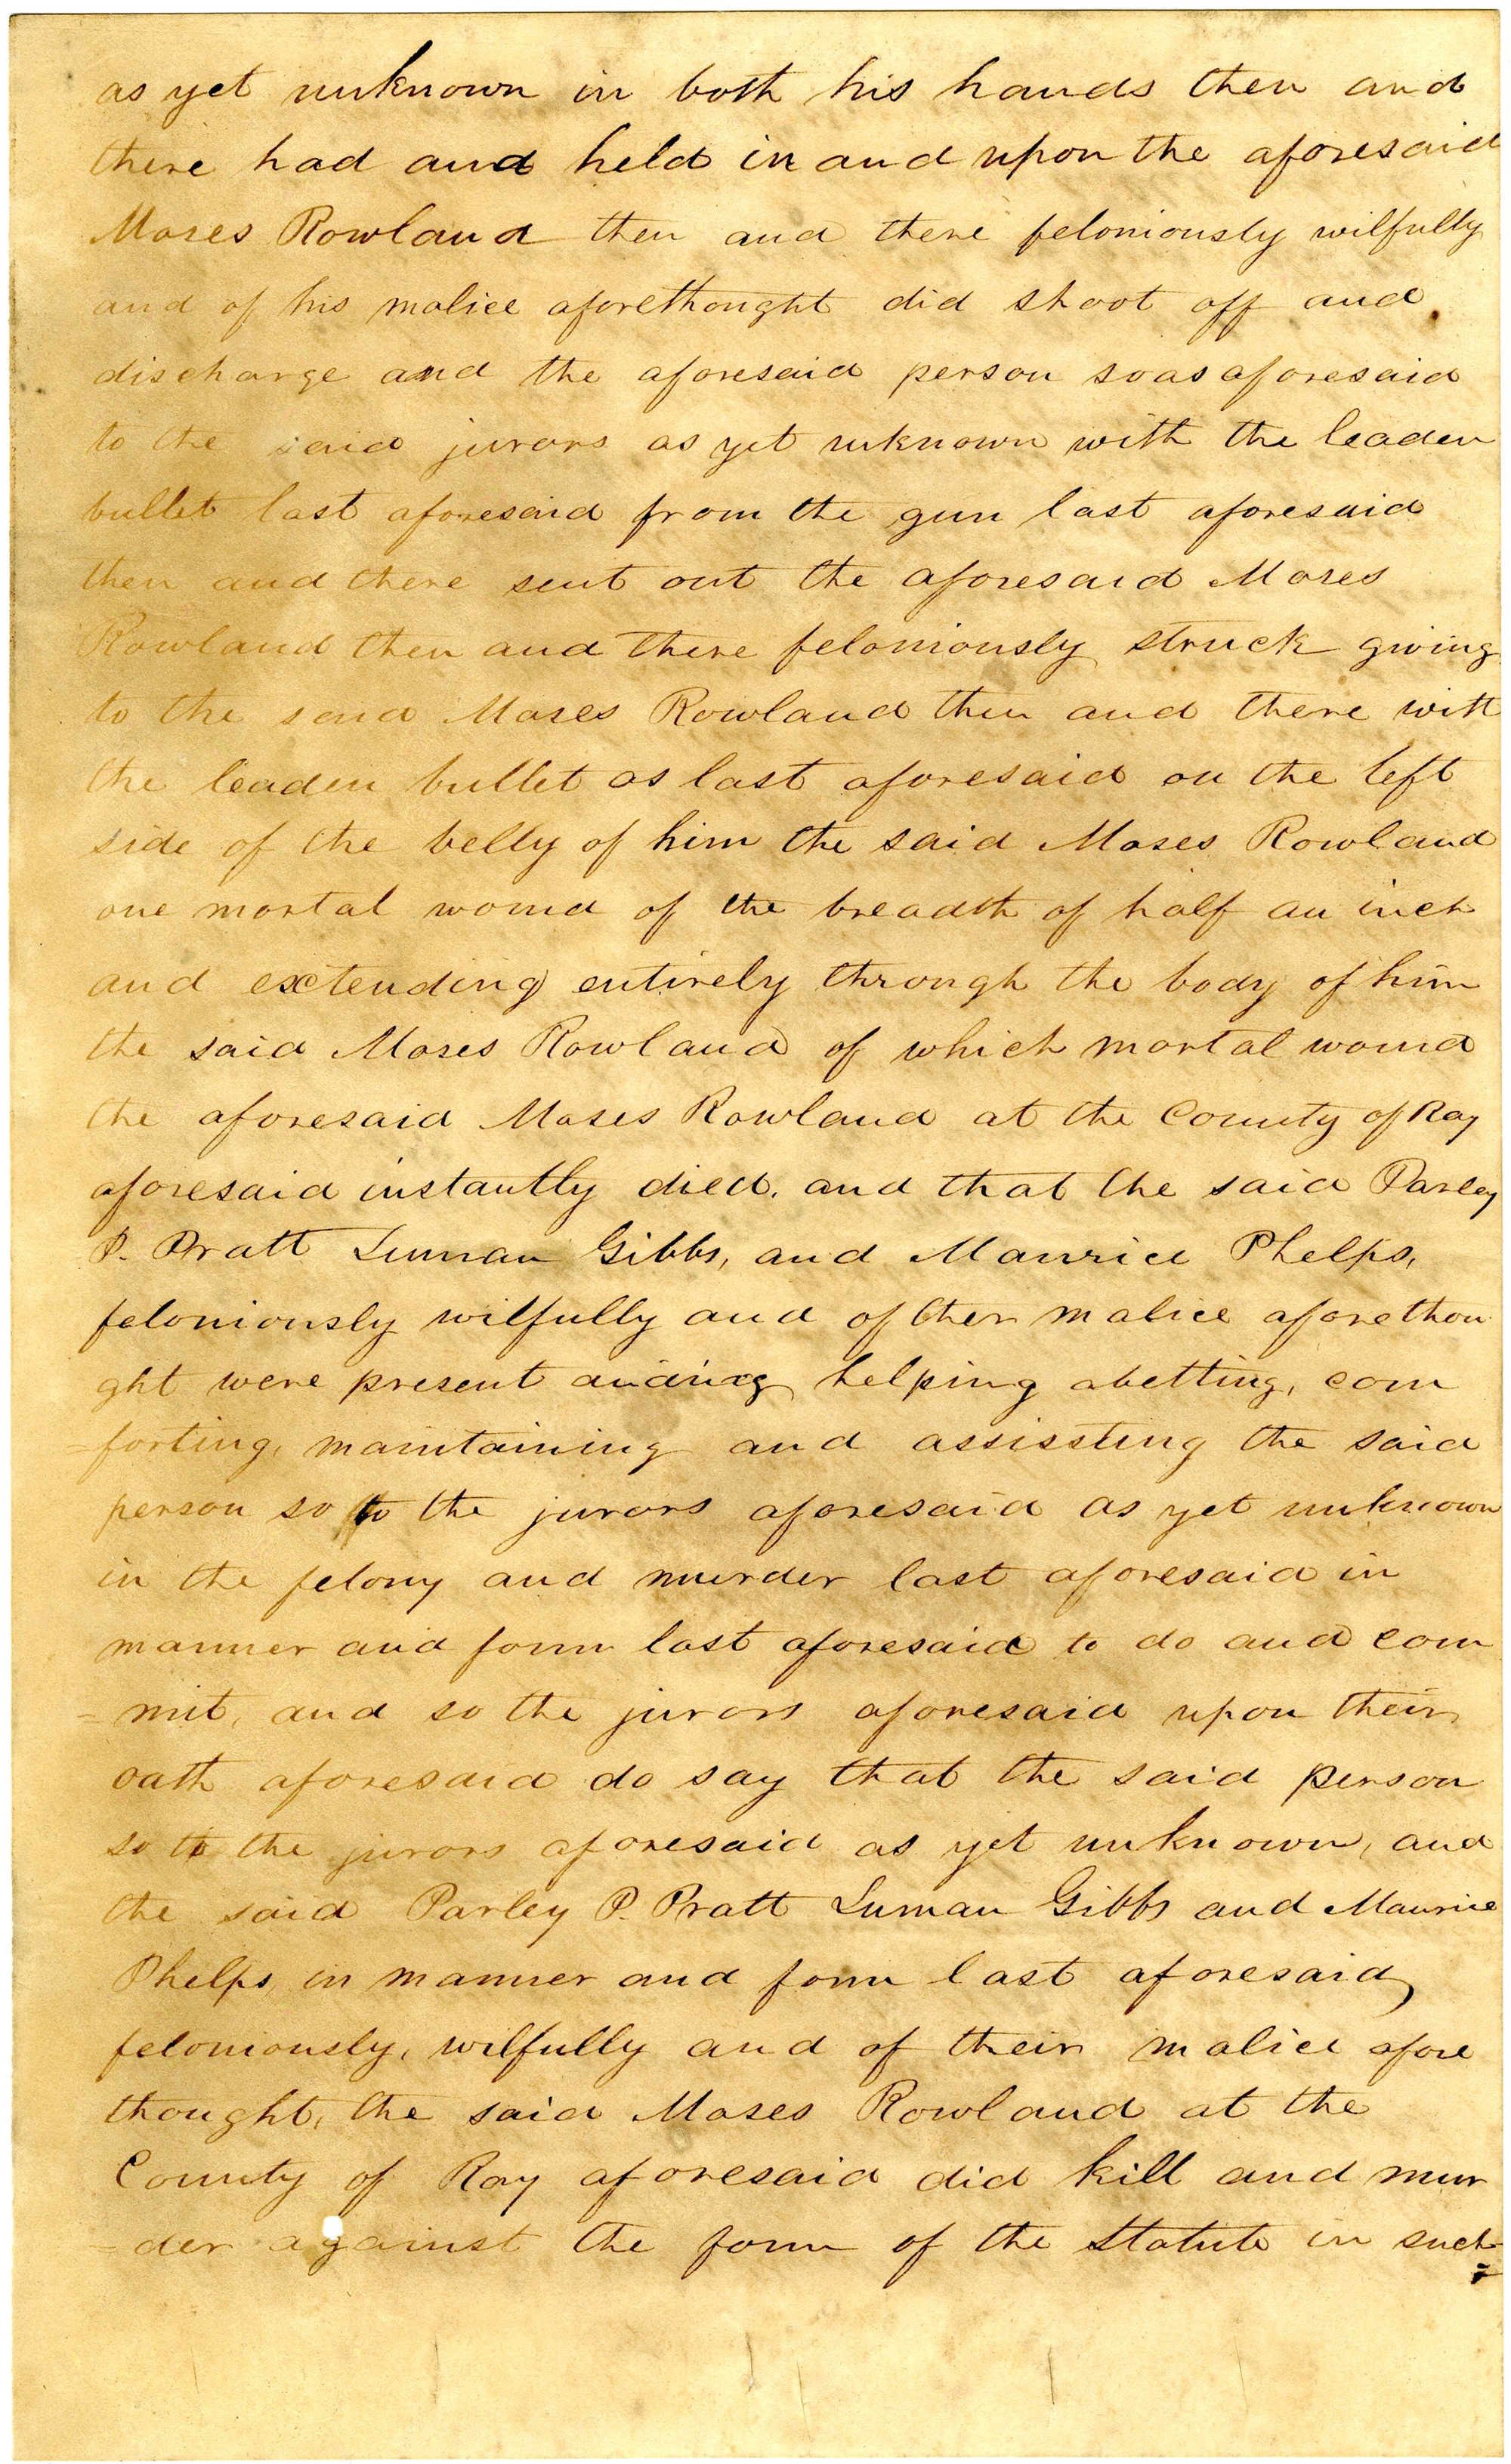 as yet unknown in both his hands then and
there had and held in and upon the aforesaid
Moses Rowland then and there feloniously wilfully
and of his malice aforethought did shoot off and
discharge and the aforesaid person so as aforesaid
to the said jurors as yet unknown with the leaden
bullet last aforesaid from the gun last aforesaid
then and there sent out the aforesaid Moses
Rowland then and there feloniously struck giving
to the said Moses Rowland then and there with
the leaden bullet as last aforesaid on the left
side of the belly of him the said Moses Rowland
one mortal wound of the breadth of half an inch
and extending entirely through the body of him
the said Moses Rowland of which mortal wound
the aforesaid Moses Rowland at the County of Ray
aforesaid instantly died. and that the said Parley
P. Pratt Luman Gibbs, and Maurice Phelps,
feloniously wilfully and of ther malice aforethou
ght were present aiding helping abetting, com
=forting, maintaining and assissting the said
person so to the jurors aforesaid as yet unknown
in the felony and murder last aforesaid in
manner and form last aforesaid to do and com
=mit, and so the jurors aforesaid upon their
oath aforesaid do say that the said person
so to the jurors aforesaid as yet unknown, and
the said Parley P. Pratt Luman Gibbs and Maurice
Phelps, in manner and form last aforesaid,
feloniously, wilfully and of their malice afore
thought, the said Moses Rowland at the
County of Ray aforesaid did kill and mur
=der against the form of the Statute in such